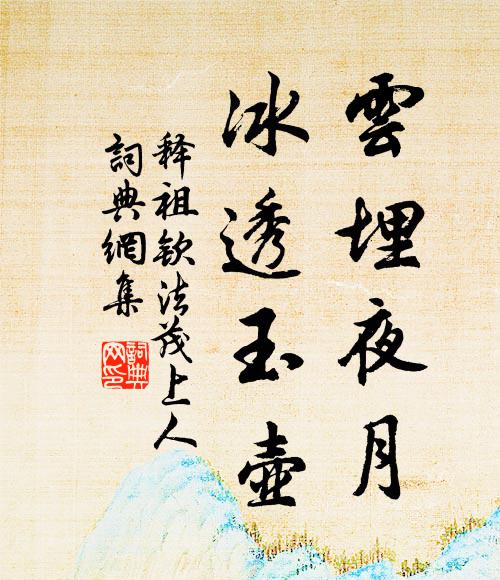 雲埋夜月
冰透玉壺
释祖钦法茂上人
詞典網集
詞典
网印